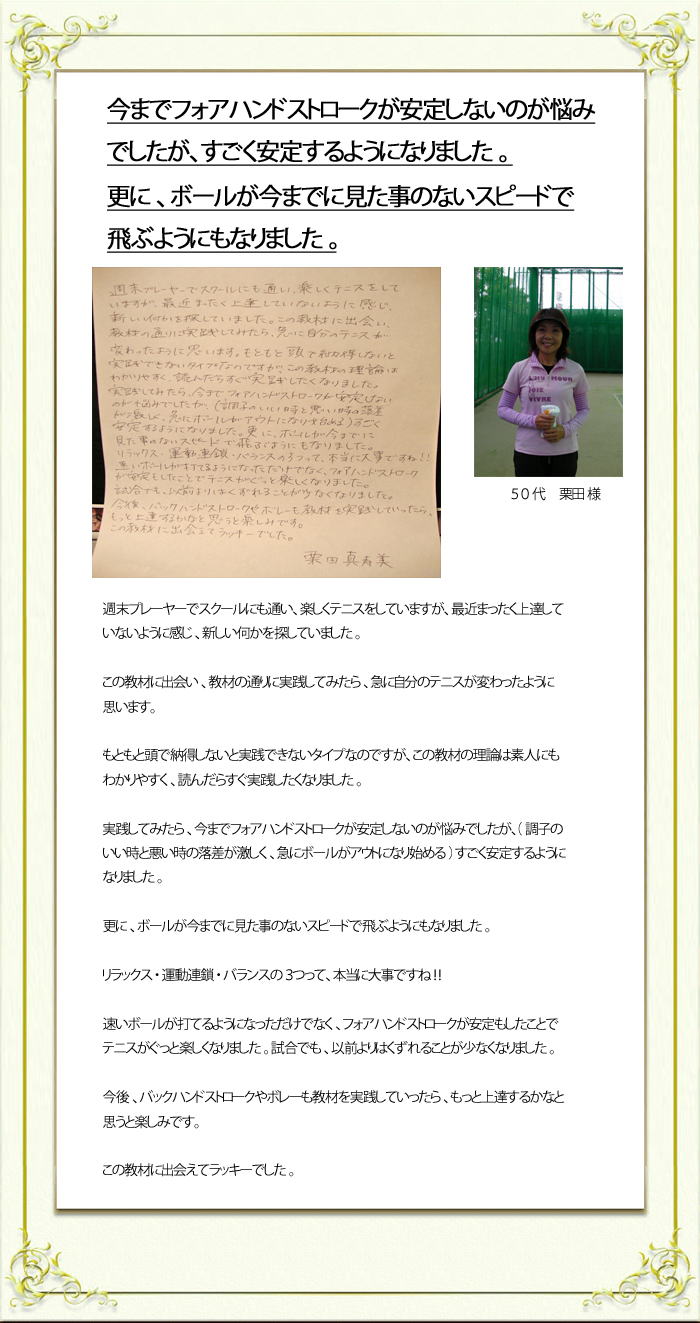 今までフォアハンドストロークが安定しないのが悩み
でしたが、すごく安定するようになりました。
更に、ボールが今までに見た事のないスピードで
飛ぶようにもなりました。
週末プレーヤーでスクールにも通い、楽しくテニスをして
いますが、最近まったく上達していないように感じ、
新しい何かを探していました。この教材に出会い、
教材の通りに実践してみたら、急に自分のテニスが
変わったように思います。もともと頭で納得しないと
実践できないタイプなのですが、この教材の理論は
わかりやすく、読んだらすぐ実践したくなりました。
実践してみたら、今までフォアハンドストロークが安定しない
のが悩みでしたが、(調子のいい時と悪い時の落差
が激しく、急にボールがアウトになり始める)すごく
安定するようになりました。更に、ボールが今までに
見た事のないスピードで飛ぶようにもなりました。
リラックス・運動連鎖・バランスの3つって、本当に大事ですね!!
速いボールが打てるようになっただけでなく、フォアハンドストローク
が安定もしたことでテニスがぐっと楽しくなりました。
試合でも、以前よりはくずれることが少なくなりました。
今後、バックハンドストロークやボレーも教材を実践していったら、
もっと上達するかなと思うと楽しみです。
この教材に出会えてラッキーでした。
栗田真寿美
LOIE
VIVRE
50代 栗田様
週末プレーヤーでスクールにも通い、楽しくテニスをしていますが、最近まったく上達して
いないように感じ、新しい何かを探していました。
この教材に出会い、教材の通りに実践してみたら、急に自分のテニスが変わったように
思います。
もともと頭で納得しないと実践できないタイプなのですが、この教材の理論は素人にも
わかりやすく、読んだらすぐ実践したくなりました。
実践してみたら、今までフォアハンドストロークが安定しないのが悩みでしたが、(調子の
いい時と悪い時の落差が激しく、急にボールがアウトになり始める)すごく安定するように
なりました。
更に、ボールが今までに見た事のないスピードで飛ぶようにもなりました。
リラックス・運動連鎖・バランスの3つって、本当に大事ですね!!
速いボールが打てるようになっただけでなく、フォアハンドストロークが安定もしたことで
テニスがぐっと楽しくなりました。試合でも、以前よりはくずれることが少なくなりました。
今後、バックハンドストロークやボレーも教材を実践していったら、もっと上達するかなと
思うと楽しみです。
この教材に出会えてラッキーでした。